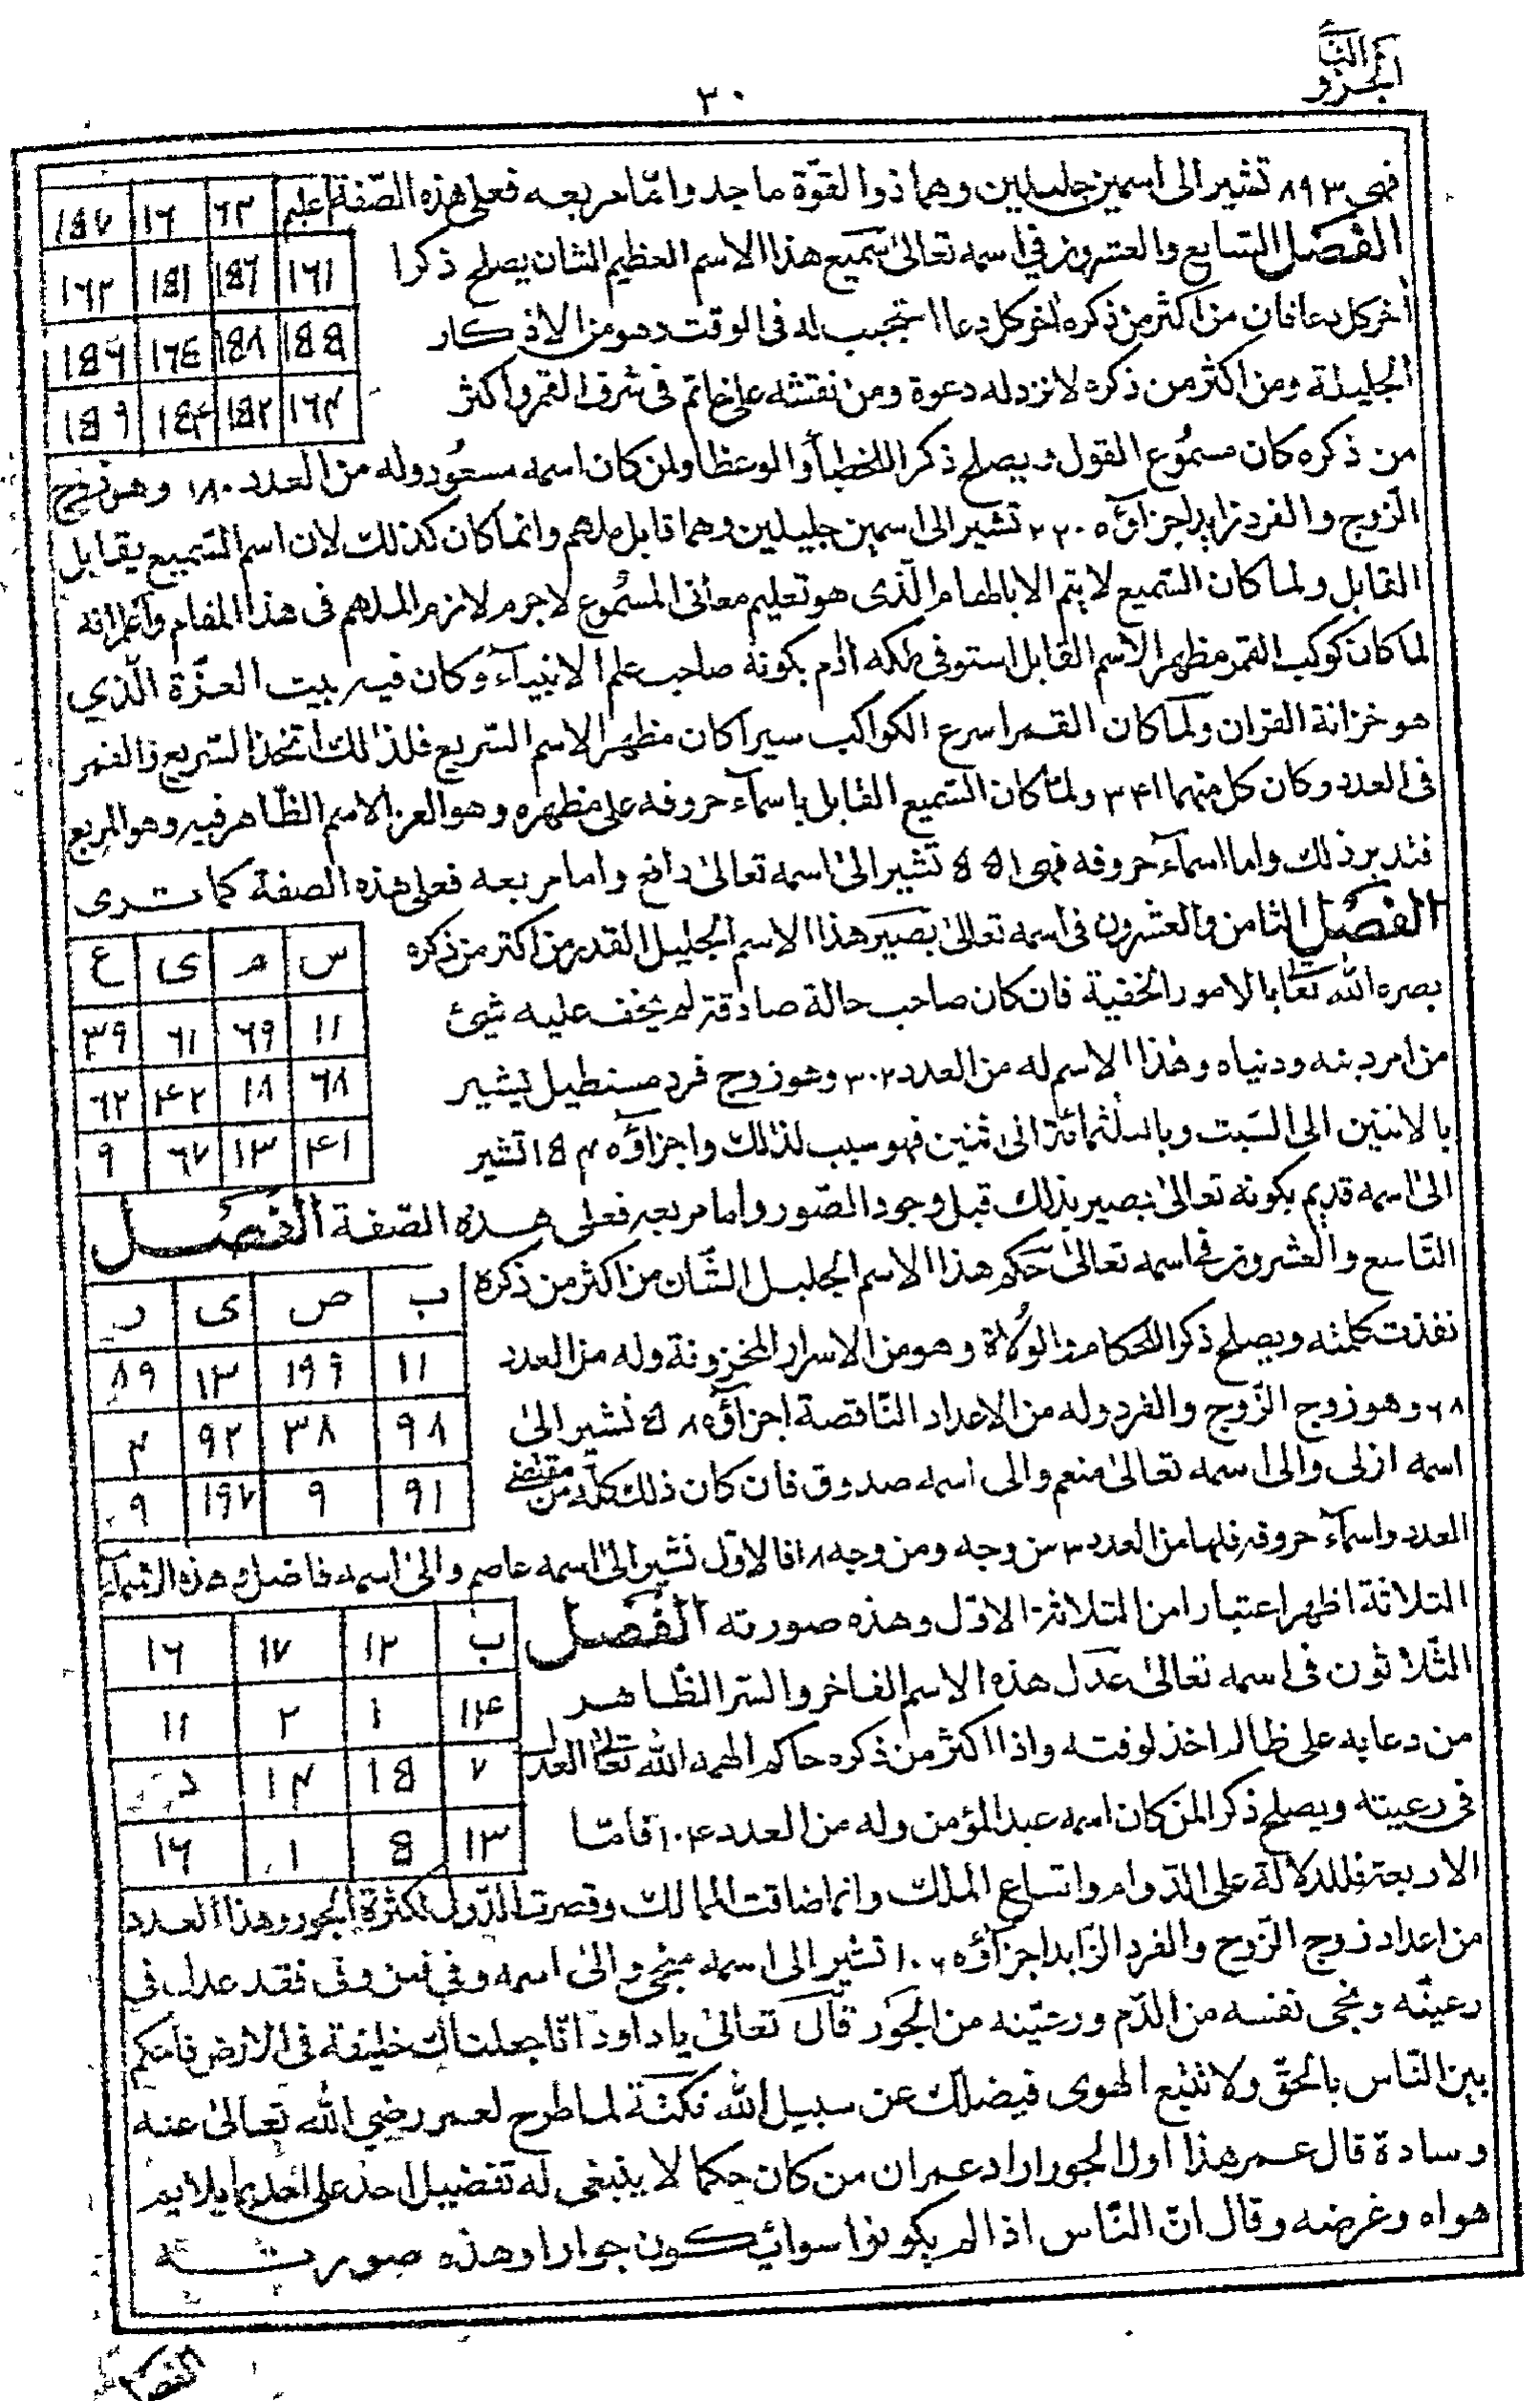 الجزو الثا
٣٠
فهى ٨٩٣ تشير الى اسمين جليلين وهما ذو القوّة ماجد وامّا مربعه فعلى هذه الصّفة اعلم
الفصل السابع والعشرون فى اسمه تعالىٰ سميع هذا الاسم العظيم الشان يصلح ذكرا
اخر كل دعا فان من اكثر من ذكره اخر كل دعا استجيب له فى الوقت وهو من الاذكار
الجليلة ومن اكثر من ذكره لا ترد له دعوة ومن نقشه على خاتم فى شرف القمر واكثر
من ذكره كان مسموع القول ويصلح ذكر اللخطبأ والوعظا ولمن كان اسمه مسعود وله من العدد ١٨٠ وهو زوج
الزوج والفرد زايد اجزاؤه ٢٢٠٥ تشير الى اسمين جليلين وهما قابل ملهم وانما كان كذلك لان اسم السميع يقابل
القابل ولما كان السميع لا يتم الا بالهام الّذى هو تعليم معانى المسموع لاجرم لازم الملهم فى هذا المقام واعلم انه
لما كان كوكب القمر مظهر الاسم القابل استوفى ملكه ادم بكونه صاحب علم الانبيآء وكان فيه بيت العزّة الّذي
هو خزانة القران ولما كان القمر اسرع الكواكب سيرا كان مظهر الاسم السريع فلذلك اتخذ السريع والقمر
فى العدد وكان كل منهما ٣٤١ ولما كان السميع القابل باسمآء حروفه على مظهره وهو العز الاسم الظّاهر فيه وهو المربع
فتدبر ذلك واما اسمآء حروفه فهى ١٥٥ تشير الىٰ اسمه تعالىٰ دافع واما مربعه فعلى هذه الصفة كما ترى
الفصل الثامن والعشرون فى اسمه تعالىٰ بصير هذا الاسم الجليل القدر من اكثر من ذكره
بصره الله تعا بالامور الخفية فان كان صاحب حالة صادقة لم يخف عليه شئ
من امر دينه ودنياه وهذا الاسم له من العدد ٣٠٢ وهو زوج فرد مستطيل يشير
بالاثنين الى السّبت وبالثلثمائة الى ثنين فهو سبب لذلك واجزاؤه ١٥٤ تشير
الىٰ اسمه قديم بكونه تعالىٰ بصير بذلك قبل وجود الصّور واما مربعه فعلى هذه الصّفة الفصل
التّاسع والعشرون فى اسمه تعالىٰ حكم هذا الاسم الجليل الشّان من اكثر من ذكره
نفذت كلمته ويصلح ذكر اللحكام والولاة وهو من الاسرار المخزونة وله من العدد
٦٨ وهو زوج الزّوج والفرد وله من الاعداد النّاقصة اجزآؤه ٥٨ تشير الىٰ
اسمه ازلى والى اسمه تعالىٰ منعم والى اسمه صدوق فان كان ذلك كلّه من مقتضى
العدد واسمآء حروفه فلها من العدد ٣ من وجه ومن وجه ١٨ فالاوّل تشير الىٰ اسمه عاصم والىٰ اسمه فاضل وهذه الاسمآء
الثلاثة اظهر اعتبارا من الثلاثة الاوّل وهذه صورته الفصل
الثّلاثون فى اسمه تعالىٰ عدل هذه الاسم الفاخر والسّر الظّاهر
من دعا به على ظالم اخذ لوقته واذا اكثر من ذكره حاكم الهمه الله تعالىٰ العدل
فى رعيته ويصلح ذكر المن كان اسمه عبد المؤمن وله من العدد ١٠٤ فامّا
الاربعة فللدلالة على الدّوام واتساع الملك وانما ضاقت الممالك وقصرت الدّول لكثرة الجور وهذا العدد
من اعداد زوج الزّوج والفرد الزّايد اجزآؤه ١٠٦ تشير الى اسمه منجى والىٰ اسمه وفى فمن وفى فقد عدل فى
رعيته ونجى نفسه من الذّم ورعيّته من الجور قال تعالىٰ يا داود انّا جعلناك خليفة فى الارض فاحكم
بين النّاس بالحقّ ولا تتبع الهوى فيضلك عن سبيل الله نكتة لما طرح لعمر رضي الله تعالىٰ عنه
وسادة قال عمر هذا اول الجور اراد عمر ان من كان حكما لا ينبغى له تفضيل احد على احد بما يلايم
هواه وغرضه وقال انّ النّاس اذا لم يكونوا سوا يكون جوارا وهذه صورته
٦٣ ١٦ ١٥٧
١٦١ ١٥٦ ١٥١ ١٦٢
١٥٥ ١٥٨ ١٦٤ ١٥٦
١٦٣ ١٥٢ ١٥٤ ١٥٩
س م ى ع
١١ ٦٩ ٦١ ٣٩
٦٨ ١٨ ٤٢ ٦٢
٤١ ١٣ ٦٧ ٩
ب ص ى ر
١١ ١٩٩ ١٣ ٨٩
٩٨ ٣٨ ٩٢ ٣
٩١ ٩ ١٩٧ ٩
ب ١٢ ١٧ ١٦
١٤ ١ ٢ ١١
٧ ١٥ ١٣
١٣ ٥ ١ ١٦
الفصل